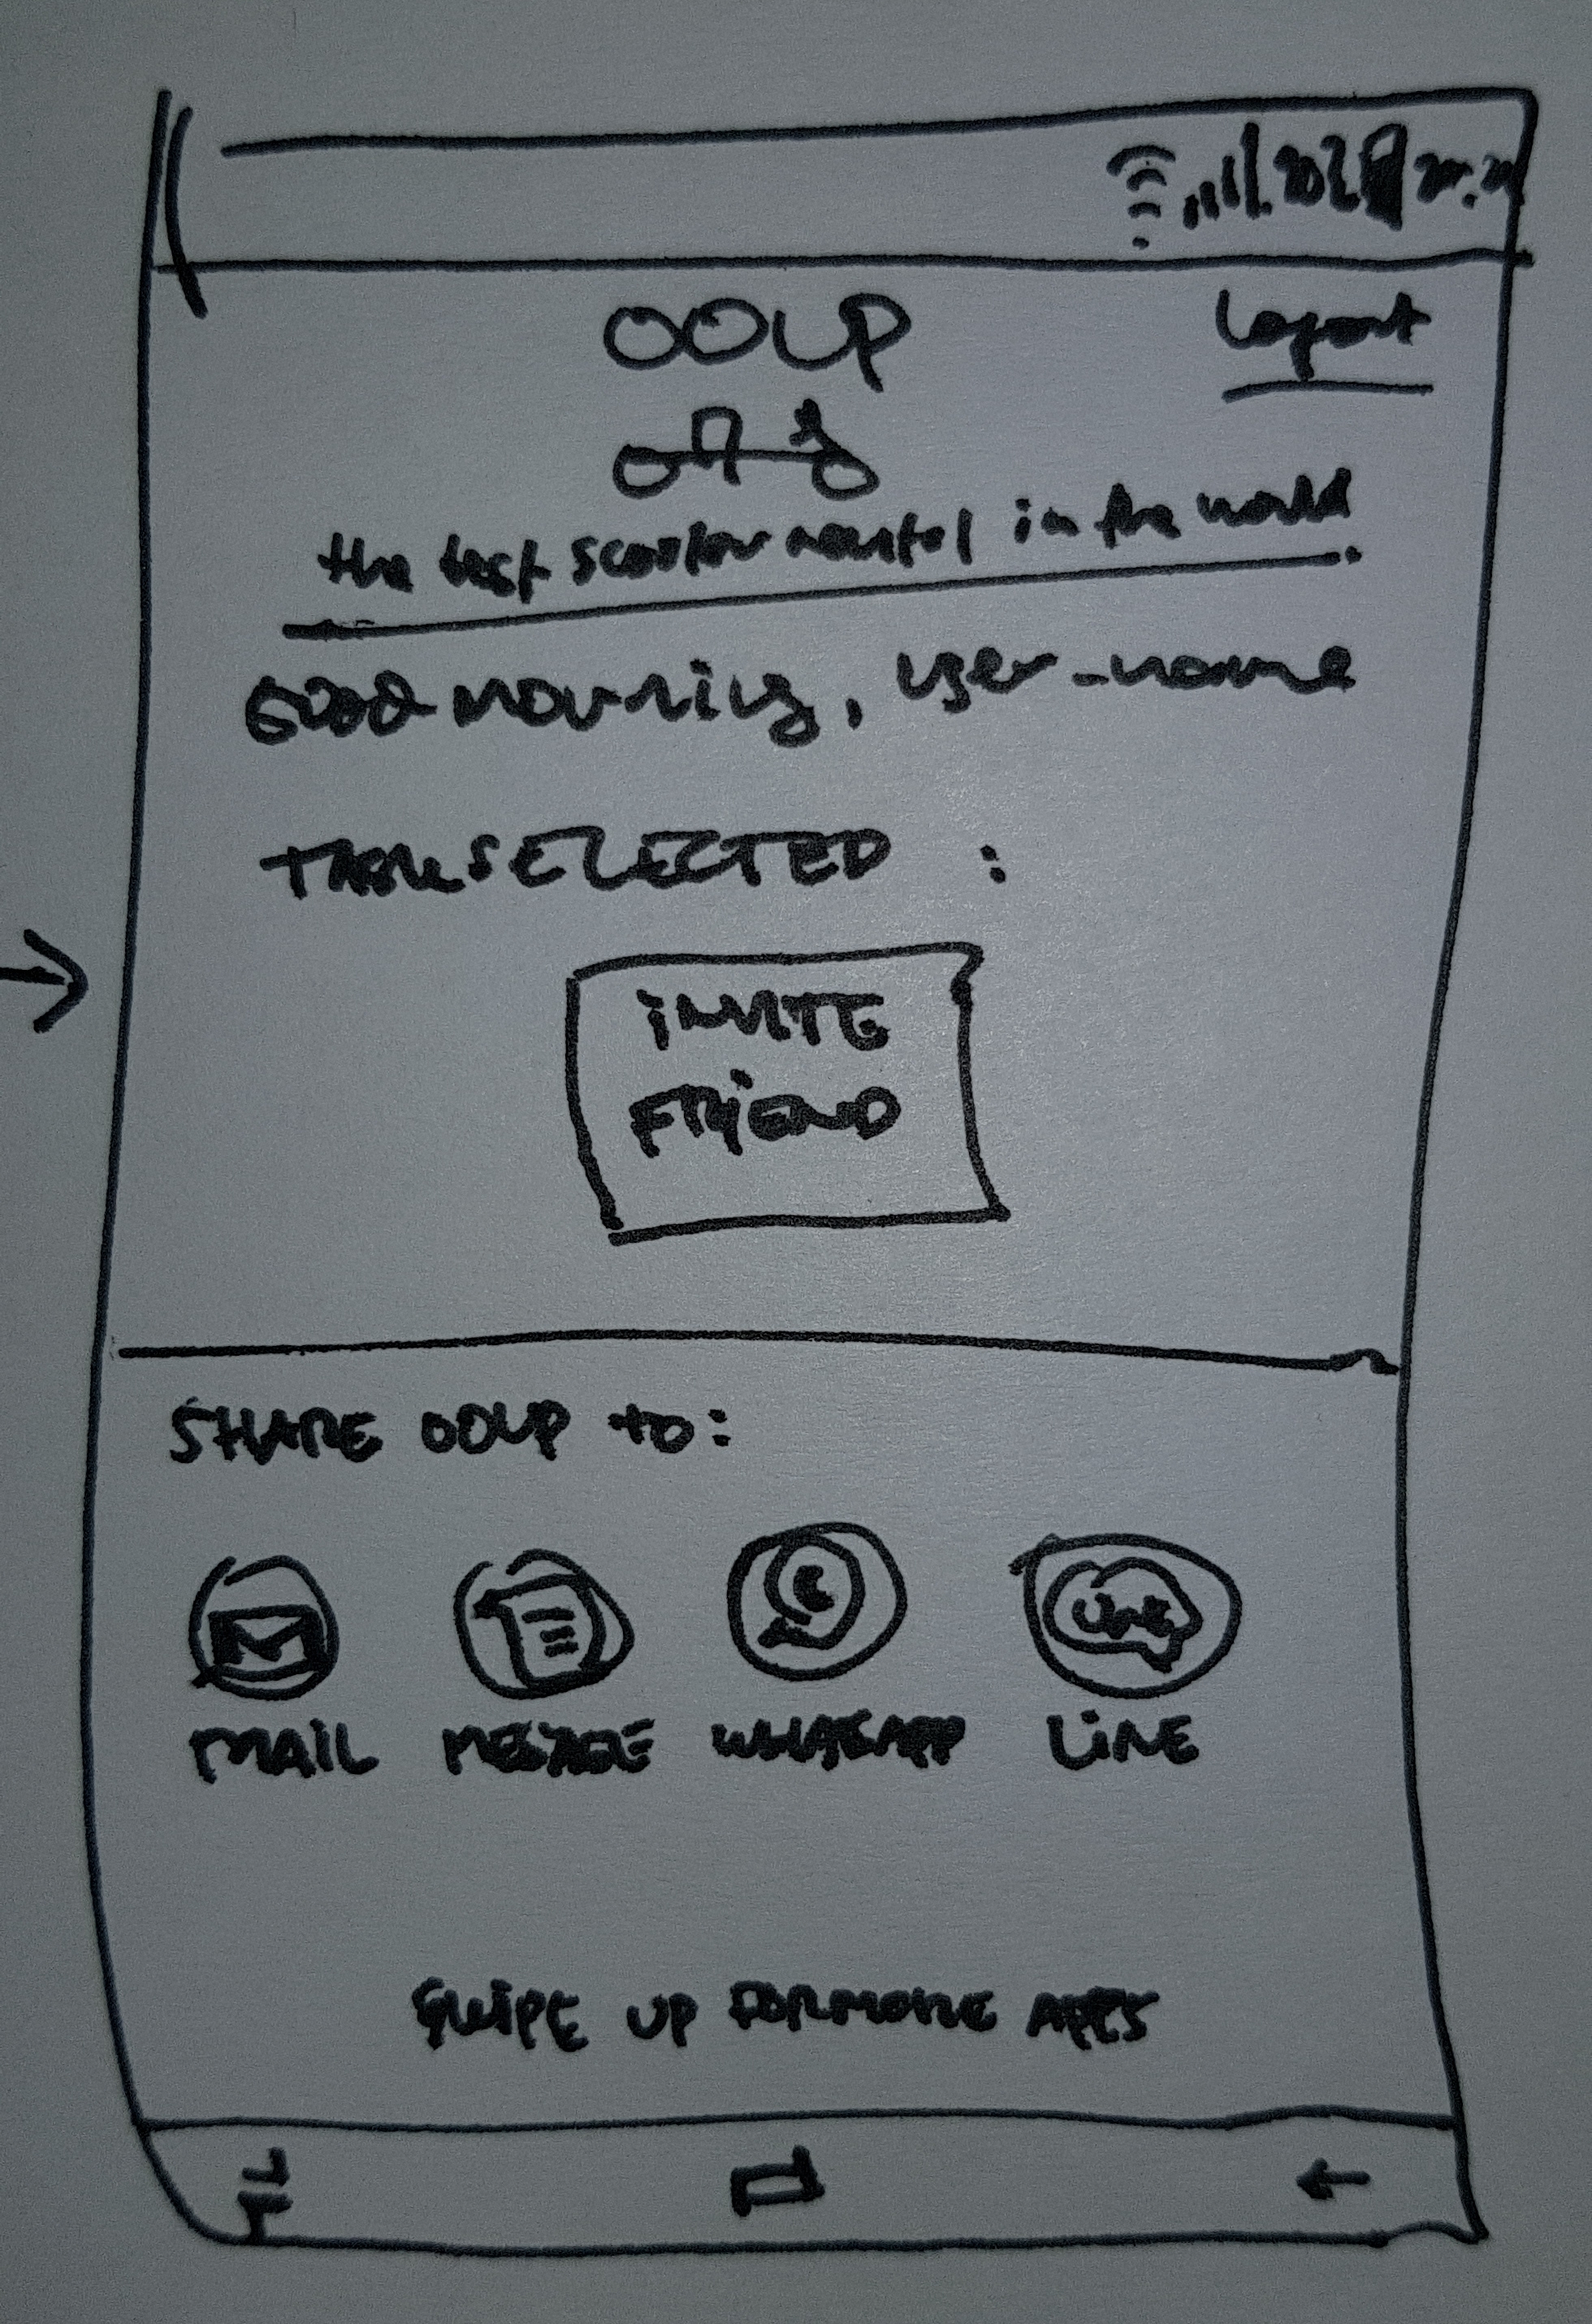 OOUP
Logout
the best scooter rental in the world
Good morning, user_name
TASK SELECTED :
INVITE
FRIEND
SHARE OOUP to:
LINE
MAIL MESSAGE WHATSAPP LINE
SWIPE UP FOR MORE APPS